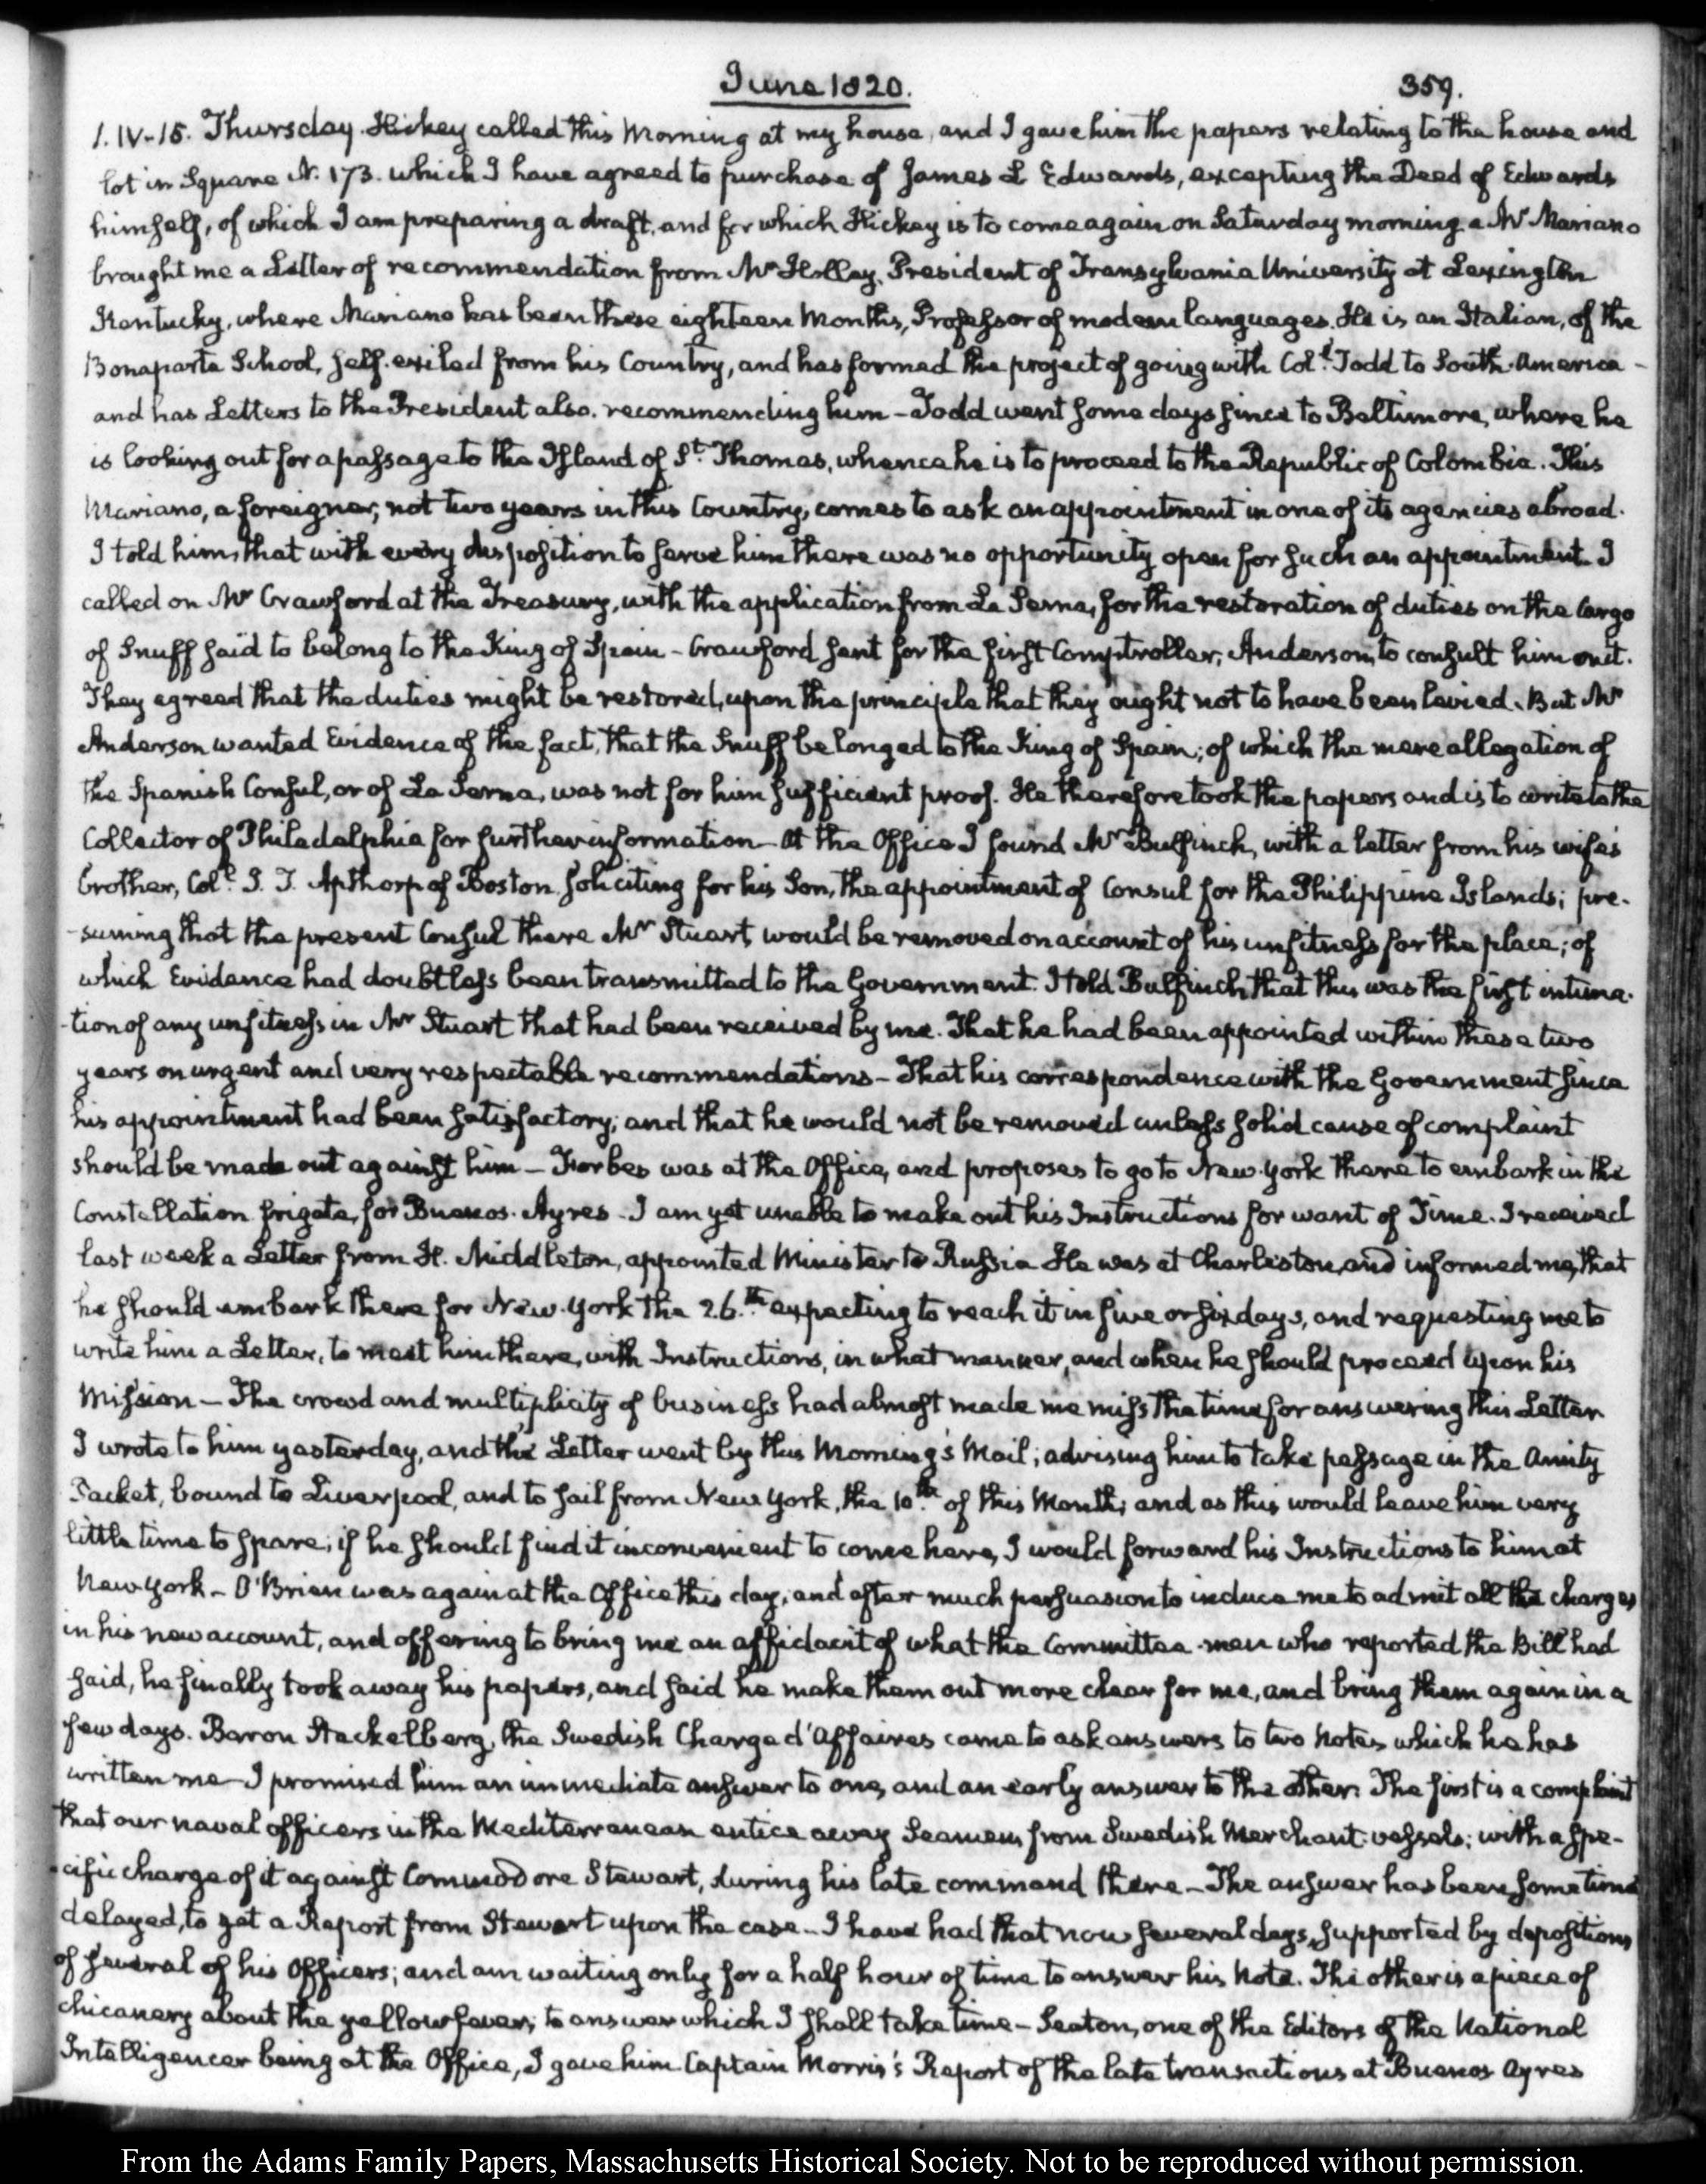 June 1820.
359.
1. IV-15. Thursday. Hickey called this Morning at my house, and I gave him the papers relating to the house and
lot in Square N. 173. which I have agreed to purchase of James L Edwards, excepting the Deed of Edwards
himself, of which I am preparing a draft, and for which Hickey is to come again on Saturday morning. a Mr Mariano
brought me a Letter of recommendation from Mr Holley, President of Transylvania University at Lexington
Kentucky, where Mariano has been these eighteen Months, Professor of modern languages. He is an Italian, of the
Bonaparte School, self-exiled from his Country, and has formed the project of going with Col.l Todd to South-America -
and has Letters to the President also, recommending him - Todd went some days since to Baltimore, where he
is looking out for a passage to the Island of St. Thomas, whence he is to proceed to the Republic of Colombia. This
Mariano, a foreigner, not two years in this Country, comes to ask an appointment in one of its agencies abroad.
I told him, that with every disposition to serve him there was no opportunity open for such an appointment. I
called on Mr Crawford at the Treasury, with the application from La Serna, for the restoration of duties on the Cargo
of Snuff said to belong to the King of Spain - Crawford sent for the first Comptroller, Anderson, to consult him on it.
They agreed that the duties might be restored, upon the principle that they ought not to have been levied. But Mr
Anderson wanted Evidence of the fact, that the Snuff belonged to the King of Spain; of which the mere allegation of
the Spanish Consul, or of La Serna, was not for him sufficient proof. He therefore took the papers and is to write to the
Collector of Philadelphia for further information - At the Office I found Mr Bulfinch, with a letter from his wife's
brother, Col.l J. T. Apthorp of Boston, soliciting for his Son, the appointment of Consul for the Philippine Islands; pre-
-suming that the present Consul there Mr Stuart, would be removed on account of his unfitness for the place; of
which Evidence had doubtless been transmitted to the Government. I told Bulfinch that this was the first intima-
-tion of any unfitness in Mr Stuart that had been received by me. That he had been appointed within these two
years on urgent and very respectable recommendations - That his correspondence with the Government since
his appointment had been satisfactory; and that he would not be removed unless solid cause of complaint
should be made out against him - Forbes was at the Office, and proposes to go to New-York there to embark in the
Constellation frigate, for Buenos-Ayres - I am yet unable to make out his Instructions for want of Time. I received
last week a Letter from H. Middleton, appointed Minister to Russia. He was at Charleston, and informed me, that
he should embark there for New-York the 26.th expecting to reach it in five or six days, and requesting me to
write him a Letter, to meet him there, with Instructions, in what manner, and when he should proceed upon his
Mission - The crowd and multiplicity of business had almost made me miss the time for answering this Letter.
I wrote to him yesterday, and the Letter went by this Morning's Mail; advising him to take passage in the Amity
Packet, bound to Liverpool, and to sail from New York, the 10.th of this Month; and as this would leave him very
little time to spare; if he should find it inconvenient to come here, I would forward his Instructions to him at
New York - O'Brien was again at the Office this day, and after much persuasion to induce me to admit all the charges
in his new account, and offering to bring me an affidavit of what the Committee-men who reported the Bill had
said, he finally took away his papers, and said he make them out more clear for me, and bring them again in a
few days. Baron Stackelberg, the Swedish Chargé d'Affaires came to ask answers to two Notes which he has
written me - I promised him an immediate answer to one, and an early answer to the other. The first is a complaint
that our naval officers in the Mediterranean entice away Seamen from Swedish Merchant-vessels; with a spe-
-cific charge of it against Commodore Stewart, during his late command there - The answer has been some time
delayed, to get a Report from Stewart upon the case - I have had that now several days, supported by depositions
of several of his Officers; and am waiting only for a half hour of time to answer his Note. The other is a piece of
chicanery about the yellow fever; to answer which I shall take time - Seaton, one of the Editors of the National
Intelligencer being at the Office, I gave him Captain Morris's Report of the late transactions at Buenos Ayres
From the Adams Family Papers, Massachusetts Historical Society. Not to be reproduced without permission.